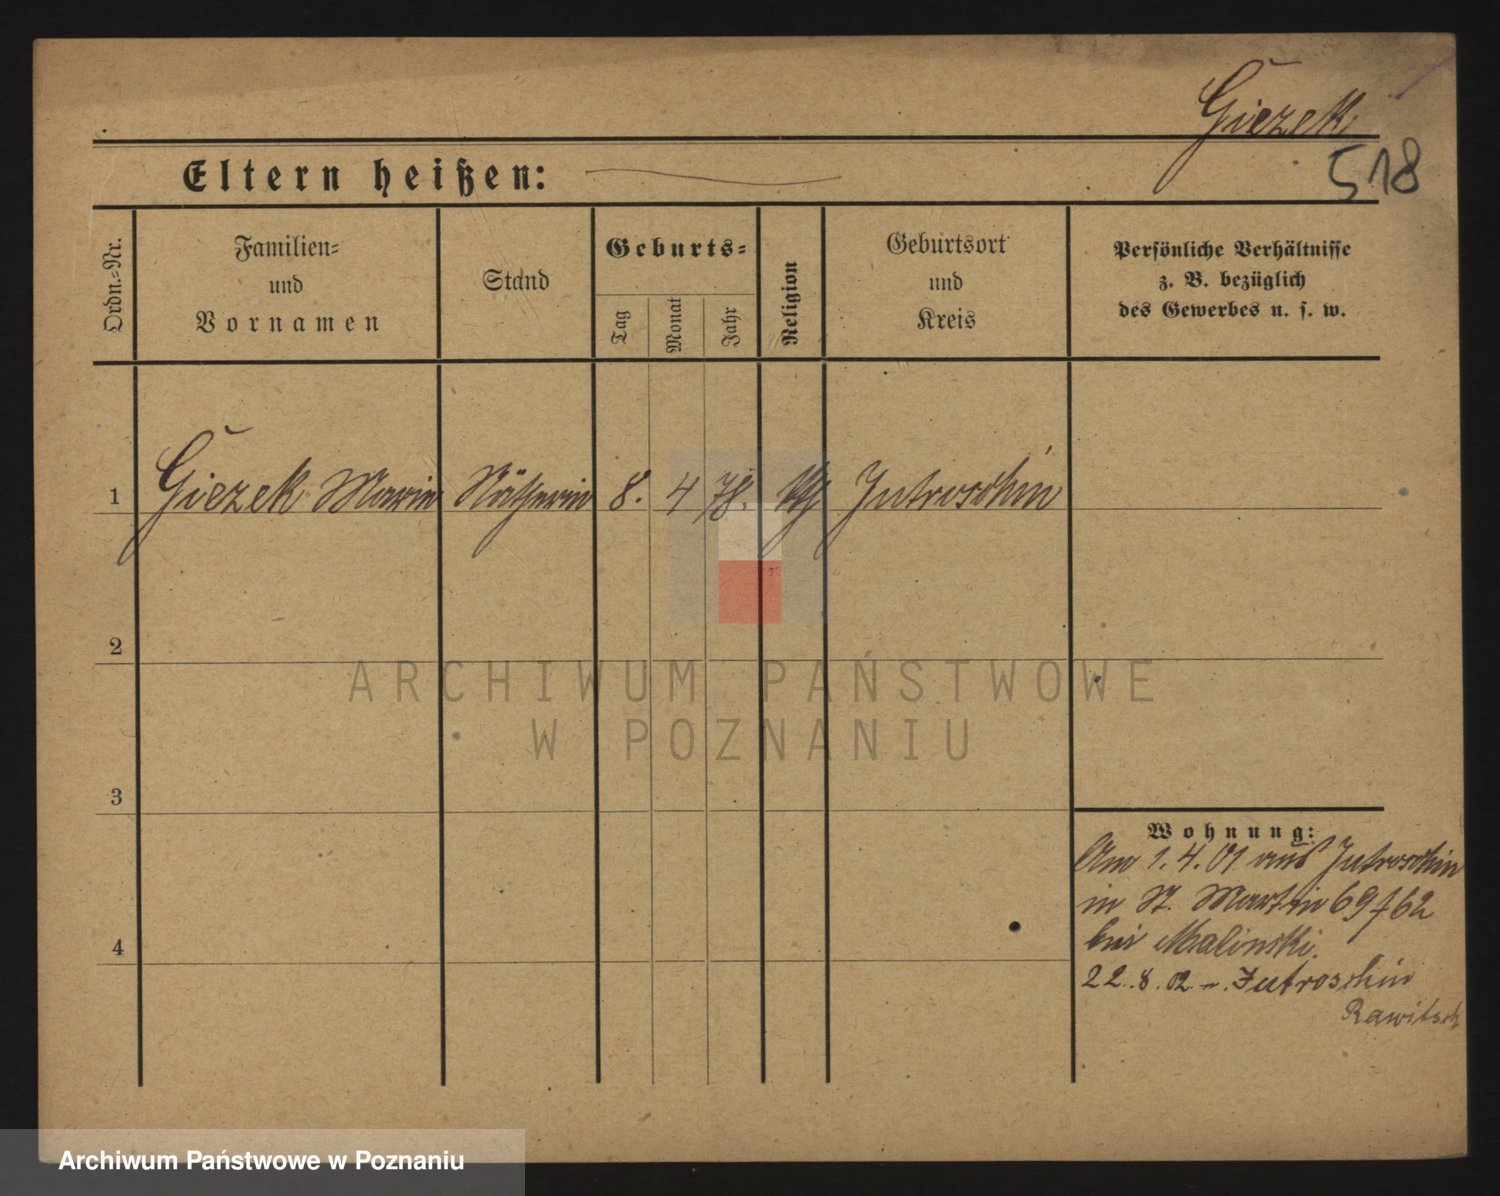 Giezek
518
Eltern heißen:
Ordn.-Nr.
Familien-
und
Vornamen
Stand
Geburts-
Tag
Monat
Jahr
Religion
Geburtsort
und
Kreis
Persönliche Verhältnisse
z. B. bezüglich
des Gewerbes u. s. w.
1 Giezek Marie Nätherin 8. 4 78. kth Jutroschin
2
3
4
Wohnung:
Am 1.4.01 aus Jutroschin
in St. Martin 69 f 62
bei Malinski.
22.8.02 n. Jutroschin
Rawitsch
ARCHIWUM PAŃSTWOWE
W POZNANIU
Archiwum Państwowe w Poznaniu